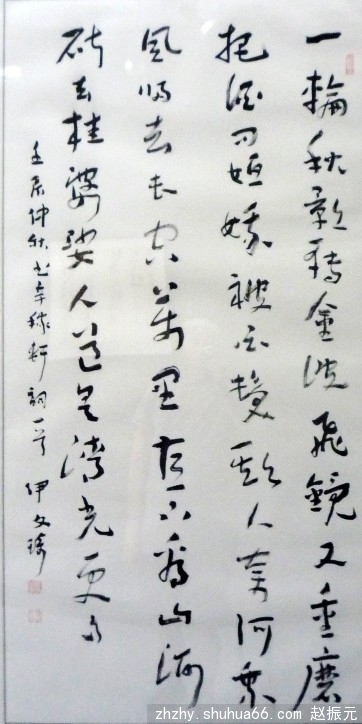 一輪秋影轉金波飛鏡又重磨
把酒问姮娥被白髮欺人奈何乘
風好去长空萬里直下看山河
斫去桂婆娑人道是清光更多
壬辰仲秋书辛稼軒詞一首 伊文
zhzhy.shuhua66.com 赵振元